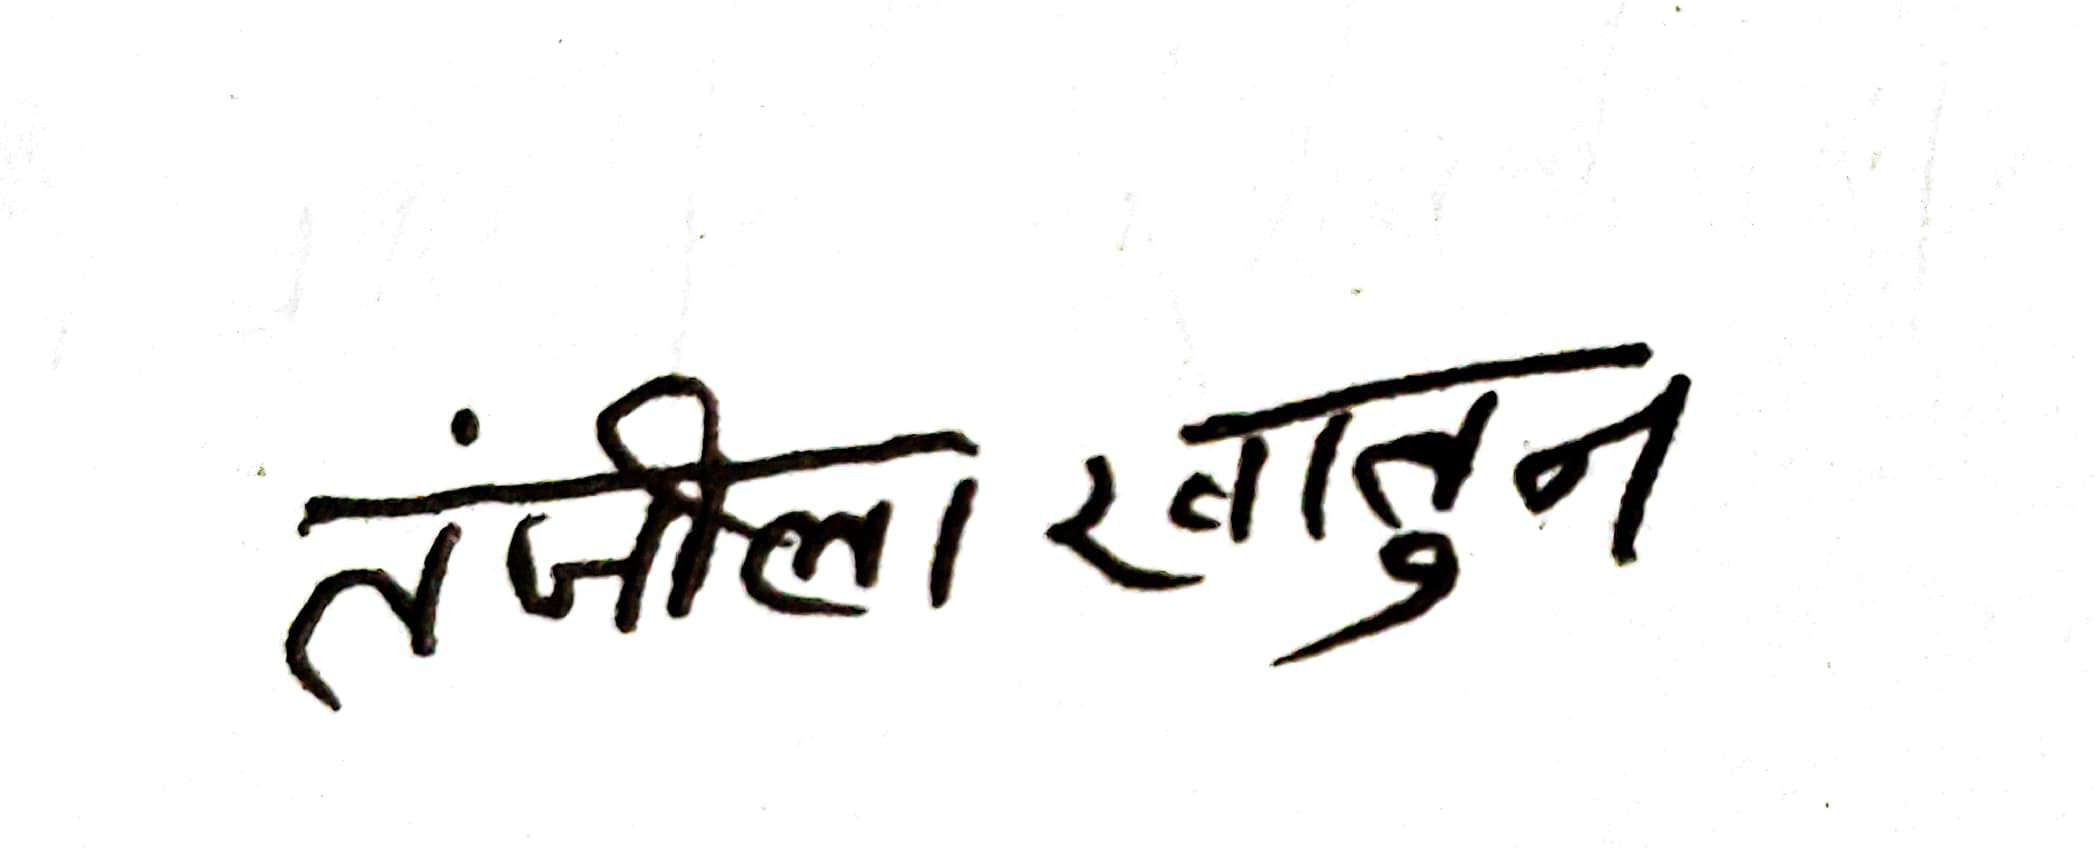 तंजीला खातुन